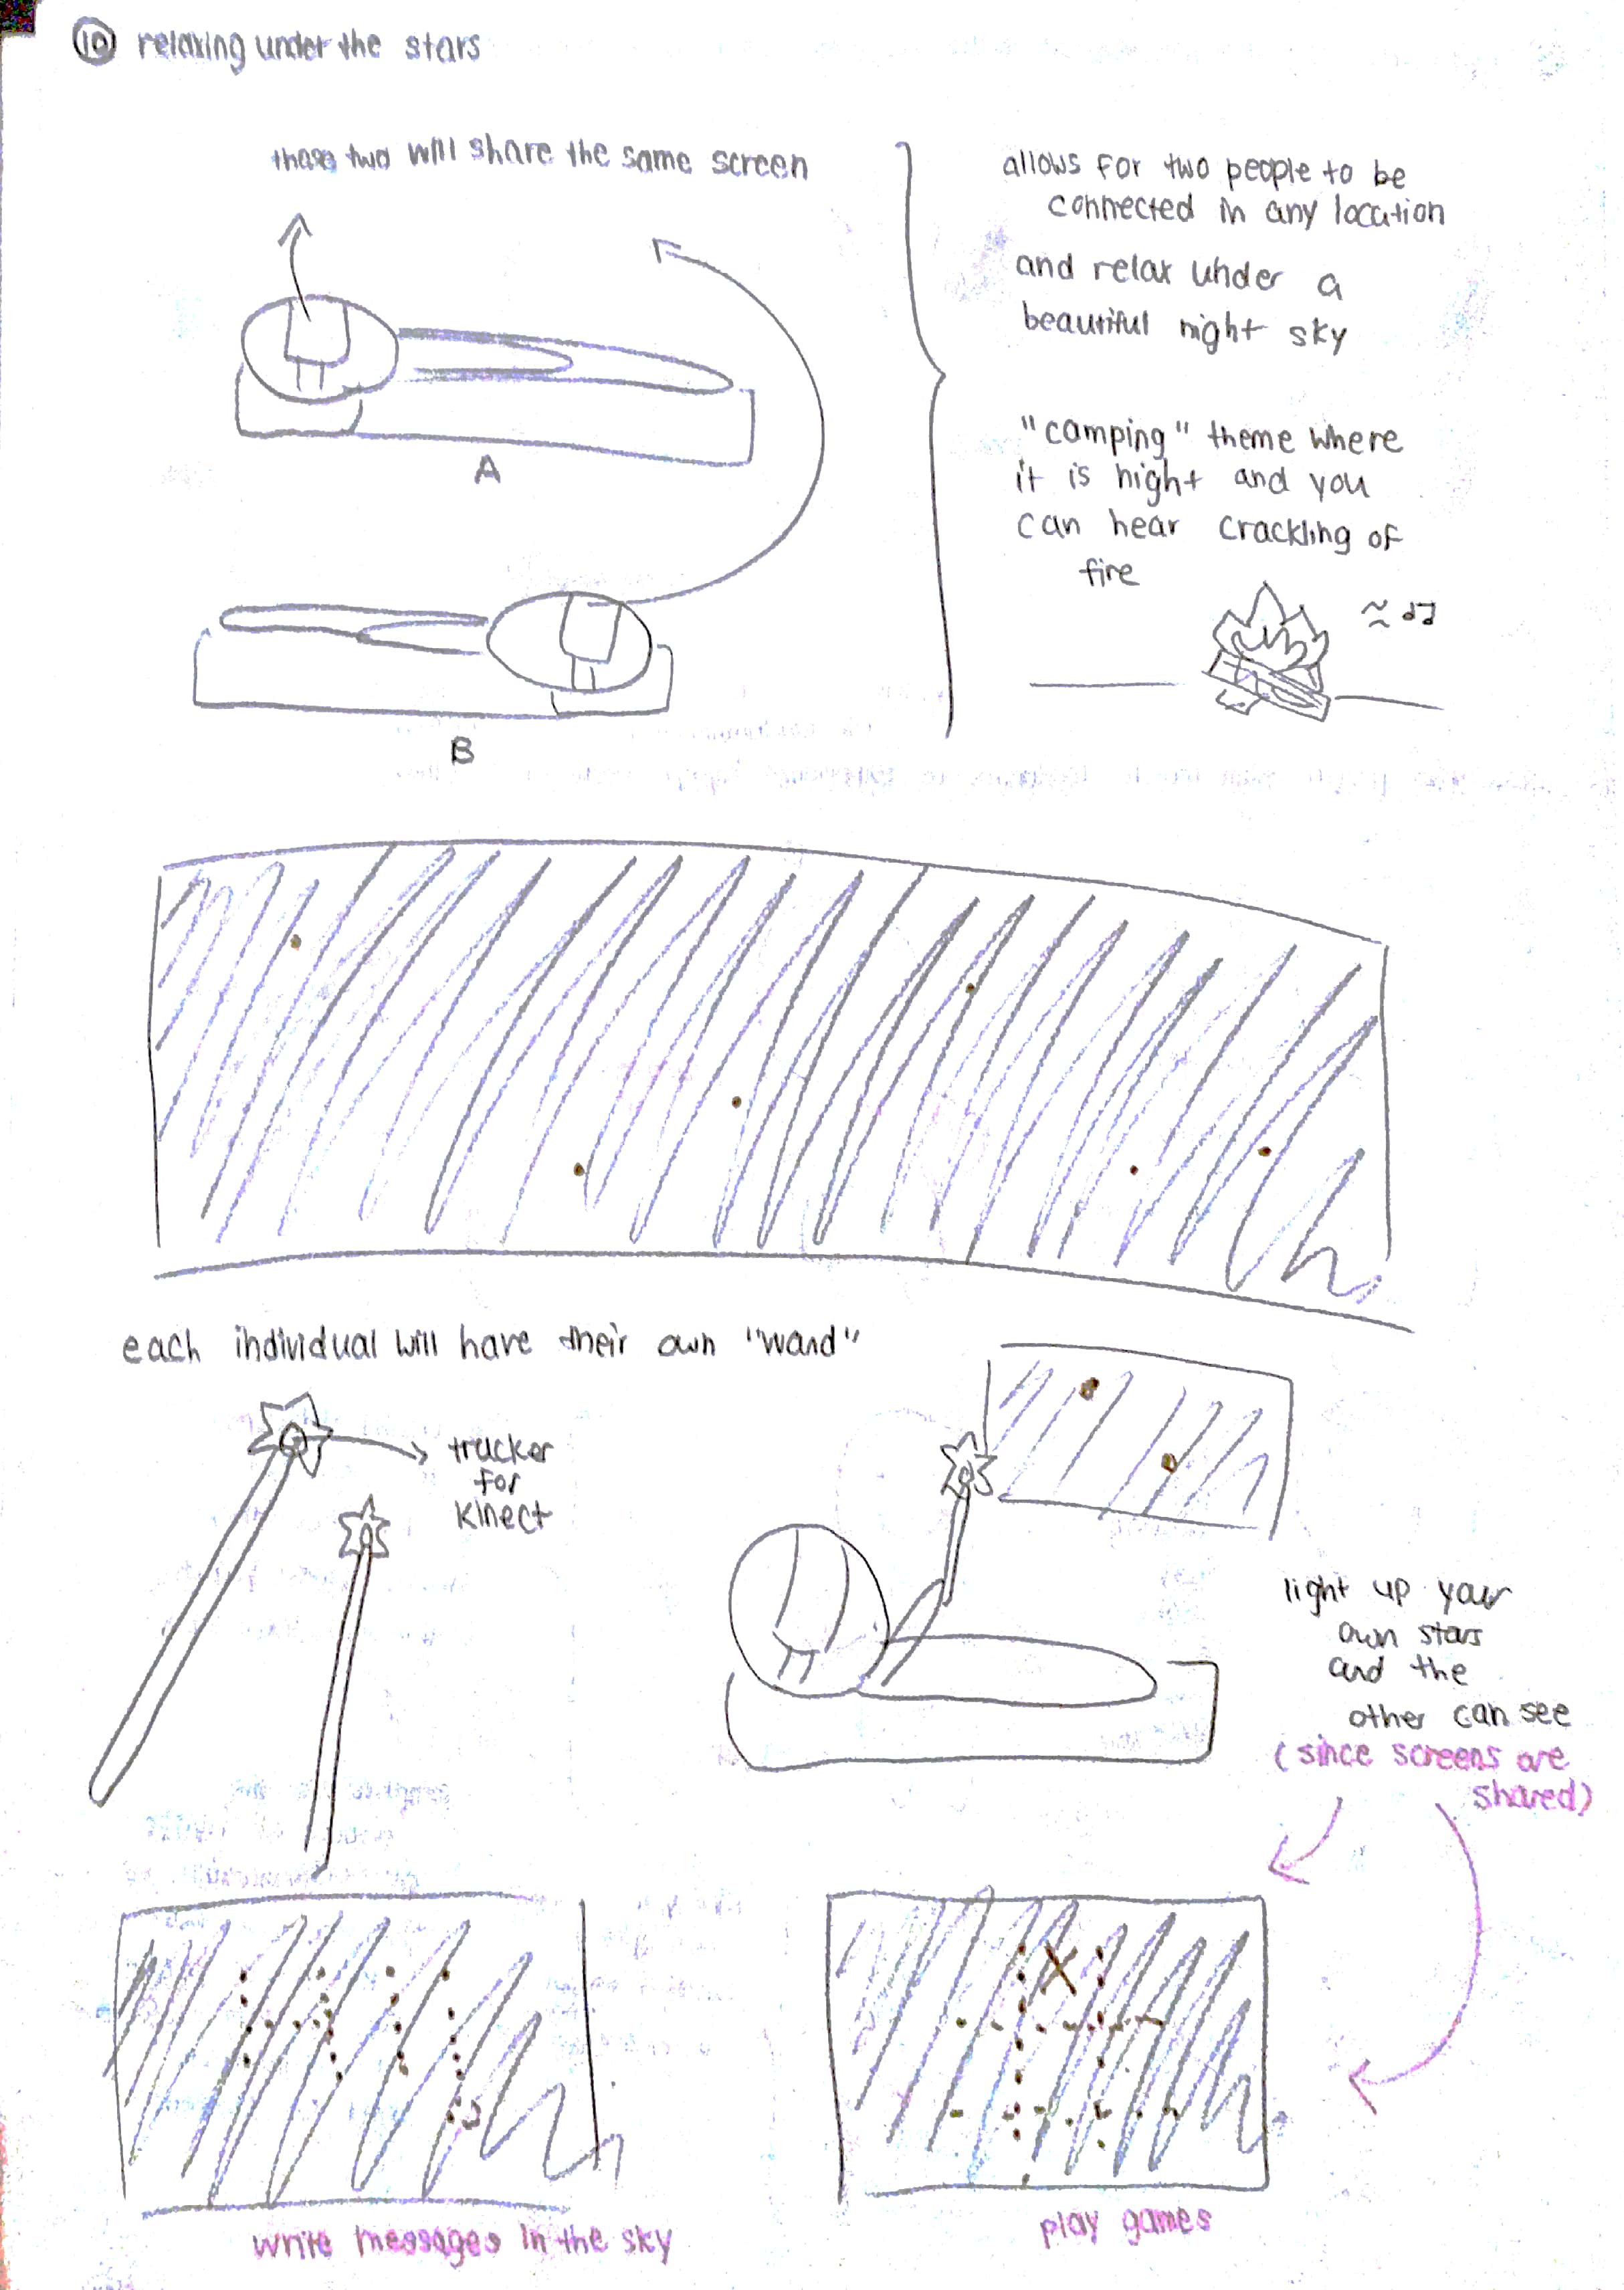 10 relaxing under the stars
these two will share the same screen
allows for two people to be
connected in any location
and relax under a
beautiful night sky
"camping" theme where
it is night and you
can hear crackling of
fire
A
B
each individual will have their own "wand"
tracker
for
kinect
light up your
own stars
and the
other can see
(since screens are
shared)
HI!
write messages in the sky
X
play games